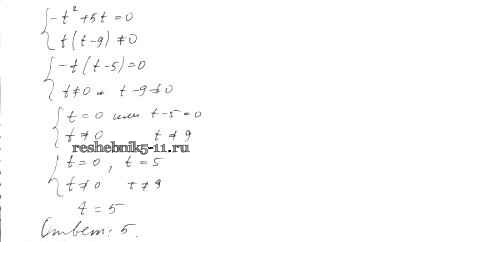 { -t² + 5t = 0
{ t(t-9) ≠ 0
{ -t(t-5) = 0
{ t≠0 и t-9≠0
{ t=0 или t-5=0
{ t≠0 t≠9
reshebnik5-11.ru
{ t=0, t=5
{ t≠0 t≠9
t=5
Ответ: 5.